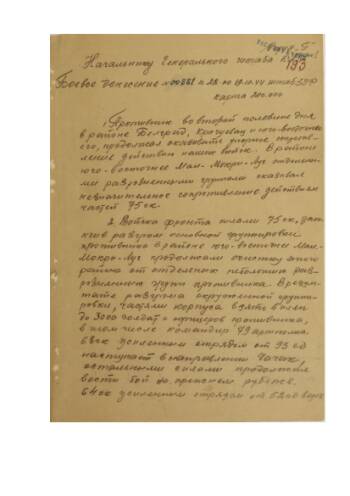 193
Начальнику Генерального штаба К.А.
Боевое донесение № 00861 к 28.00 19.10.44 штаб 3 УФ
карта 200.000
1. Противник во второй половине дня
в районе Белград, Крагуевац и юго-восточнее
его, продолжал оказывать упорное сопротив-
ление действиям наших войск. В районе
юго-восточнее Мал. Мокри-Луг отдельны-
ми разрозненными группами оказывал
незначительное сопротивление действиям
частей 75 ск.
2. Войска фронта силами 75 ск,
разгром основной группировки
противника в районе юго-восточнее Мал.
Мокри-Луг продолжали очистку этого
района от отдельных небольших раз-
розненных групп противника. В резуль-
тате разгрома окруженной группи-
ровки, частями корпуса взято в плен
до 3000 солдат и офицеров противника,
в том числе командир
68 ск усиленным отрядом от 93 сд
наступал в направлении Чачак,
остальными силами продолжал
вести бой на прежнем рубеже.
64 ск усиленным отрядом от